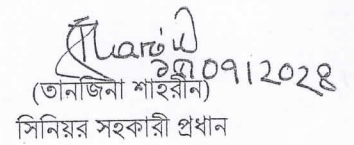 ০৯।০৯।২০২৪
(তানজিনা শাহরীন)
সিনিয়র সহকারী প্রধান